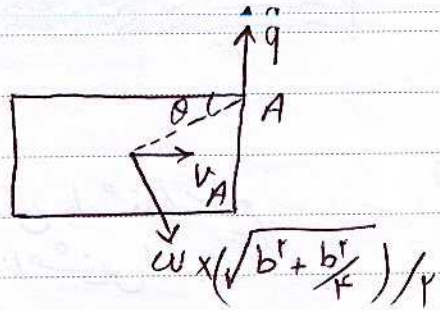 q̂
θ
A
v_A
ω×(√(b² + b²/۴))/۲